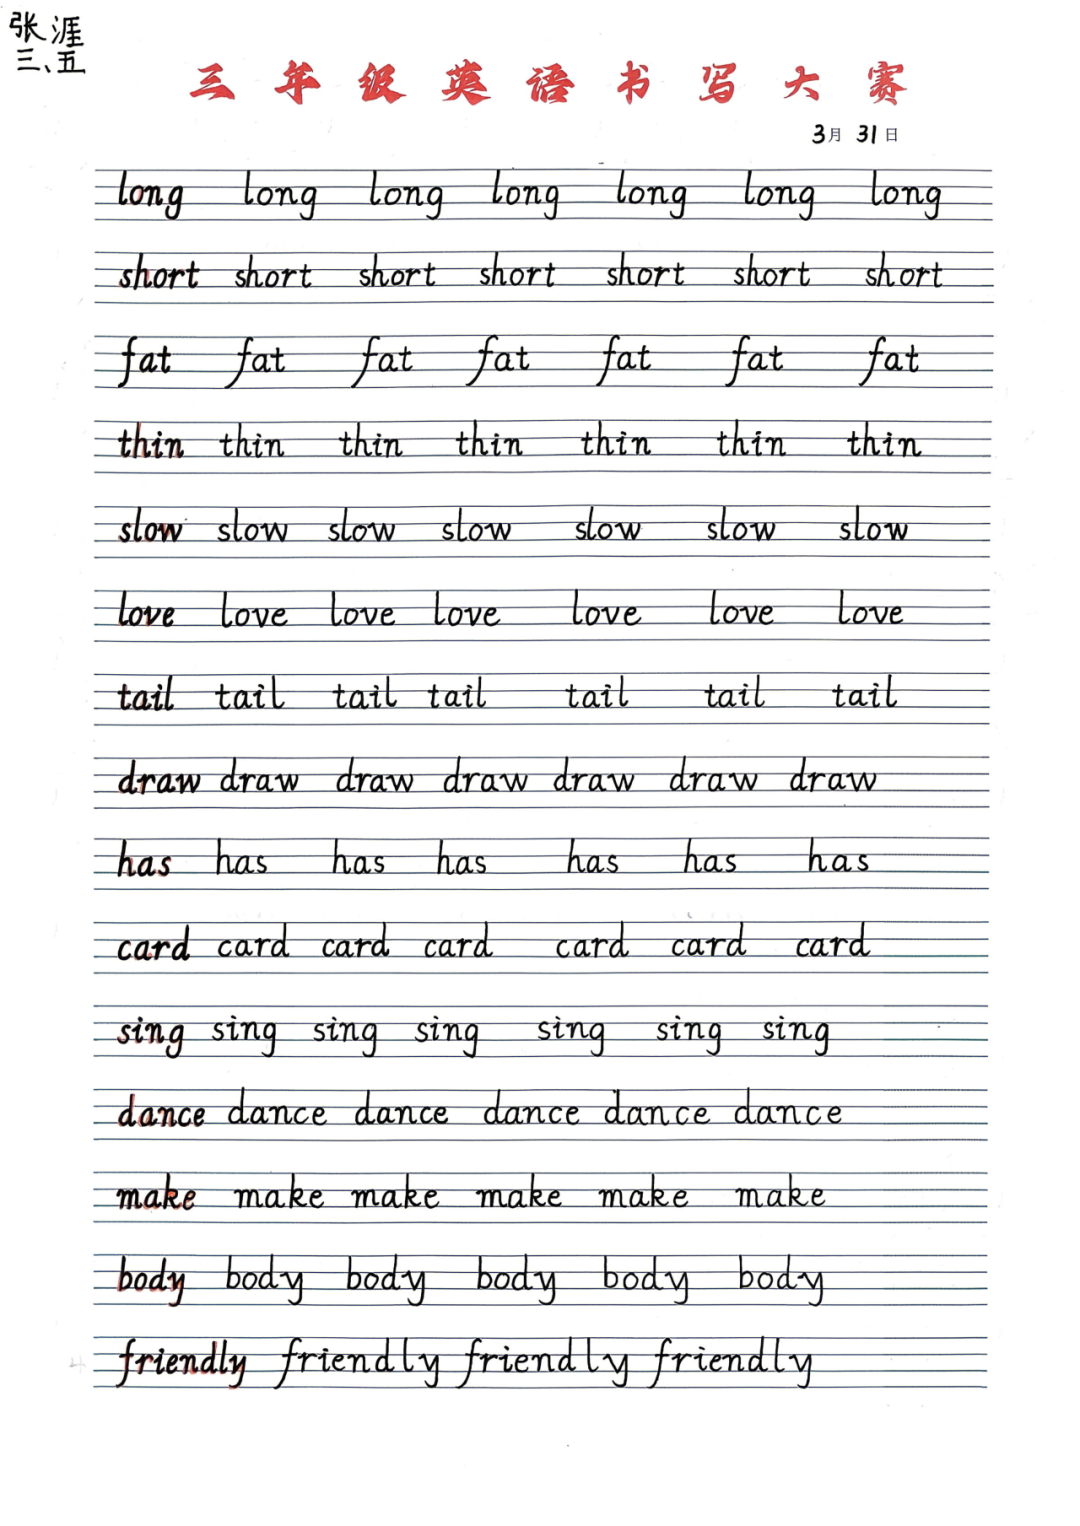 张涯
三、五
三年级英语书写大赛
3月 31日
long long long long long long long
short short short short short short short
fat fat fat fat fat fat fat
thin thin thin thin thin thin thin
slow slow slow slow slow slow slow
love love love love love love love
tail tail tail tail tail tail tail
draw draw draw draw draw draw draw
has has has has has has has
card card card card card card card
sing sing sing sing sing sing sing
dance dance dance dance dance dance
make make make make make make
body body body body body body
friendly friendly friendly friendly